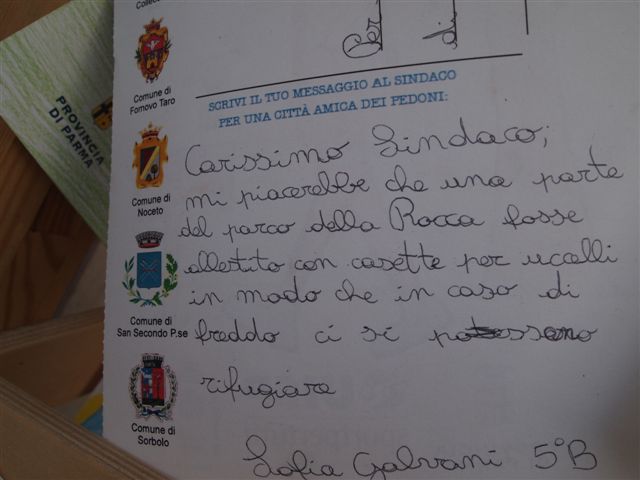 Comune di
Fornovo Taro
Comune di
Noceto
Comune di
San Secondo P.se
Comune di
Sorbolo
PROVINCIA
DI PARMA
Per
di
SCRIVI IL TUO MESSAGGIO AL SINDACO
PER UNA CITTÀ AMICA DEI PEDONI:
Carissimo Sindaco;
mi piacerebbe che una parte
del parco della Rocca fosse
allestito con casette per ucalli
in modo che in caso di
freddo ci si potessono
rifugiare
Sofia Galvani 5°B